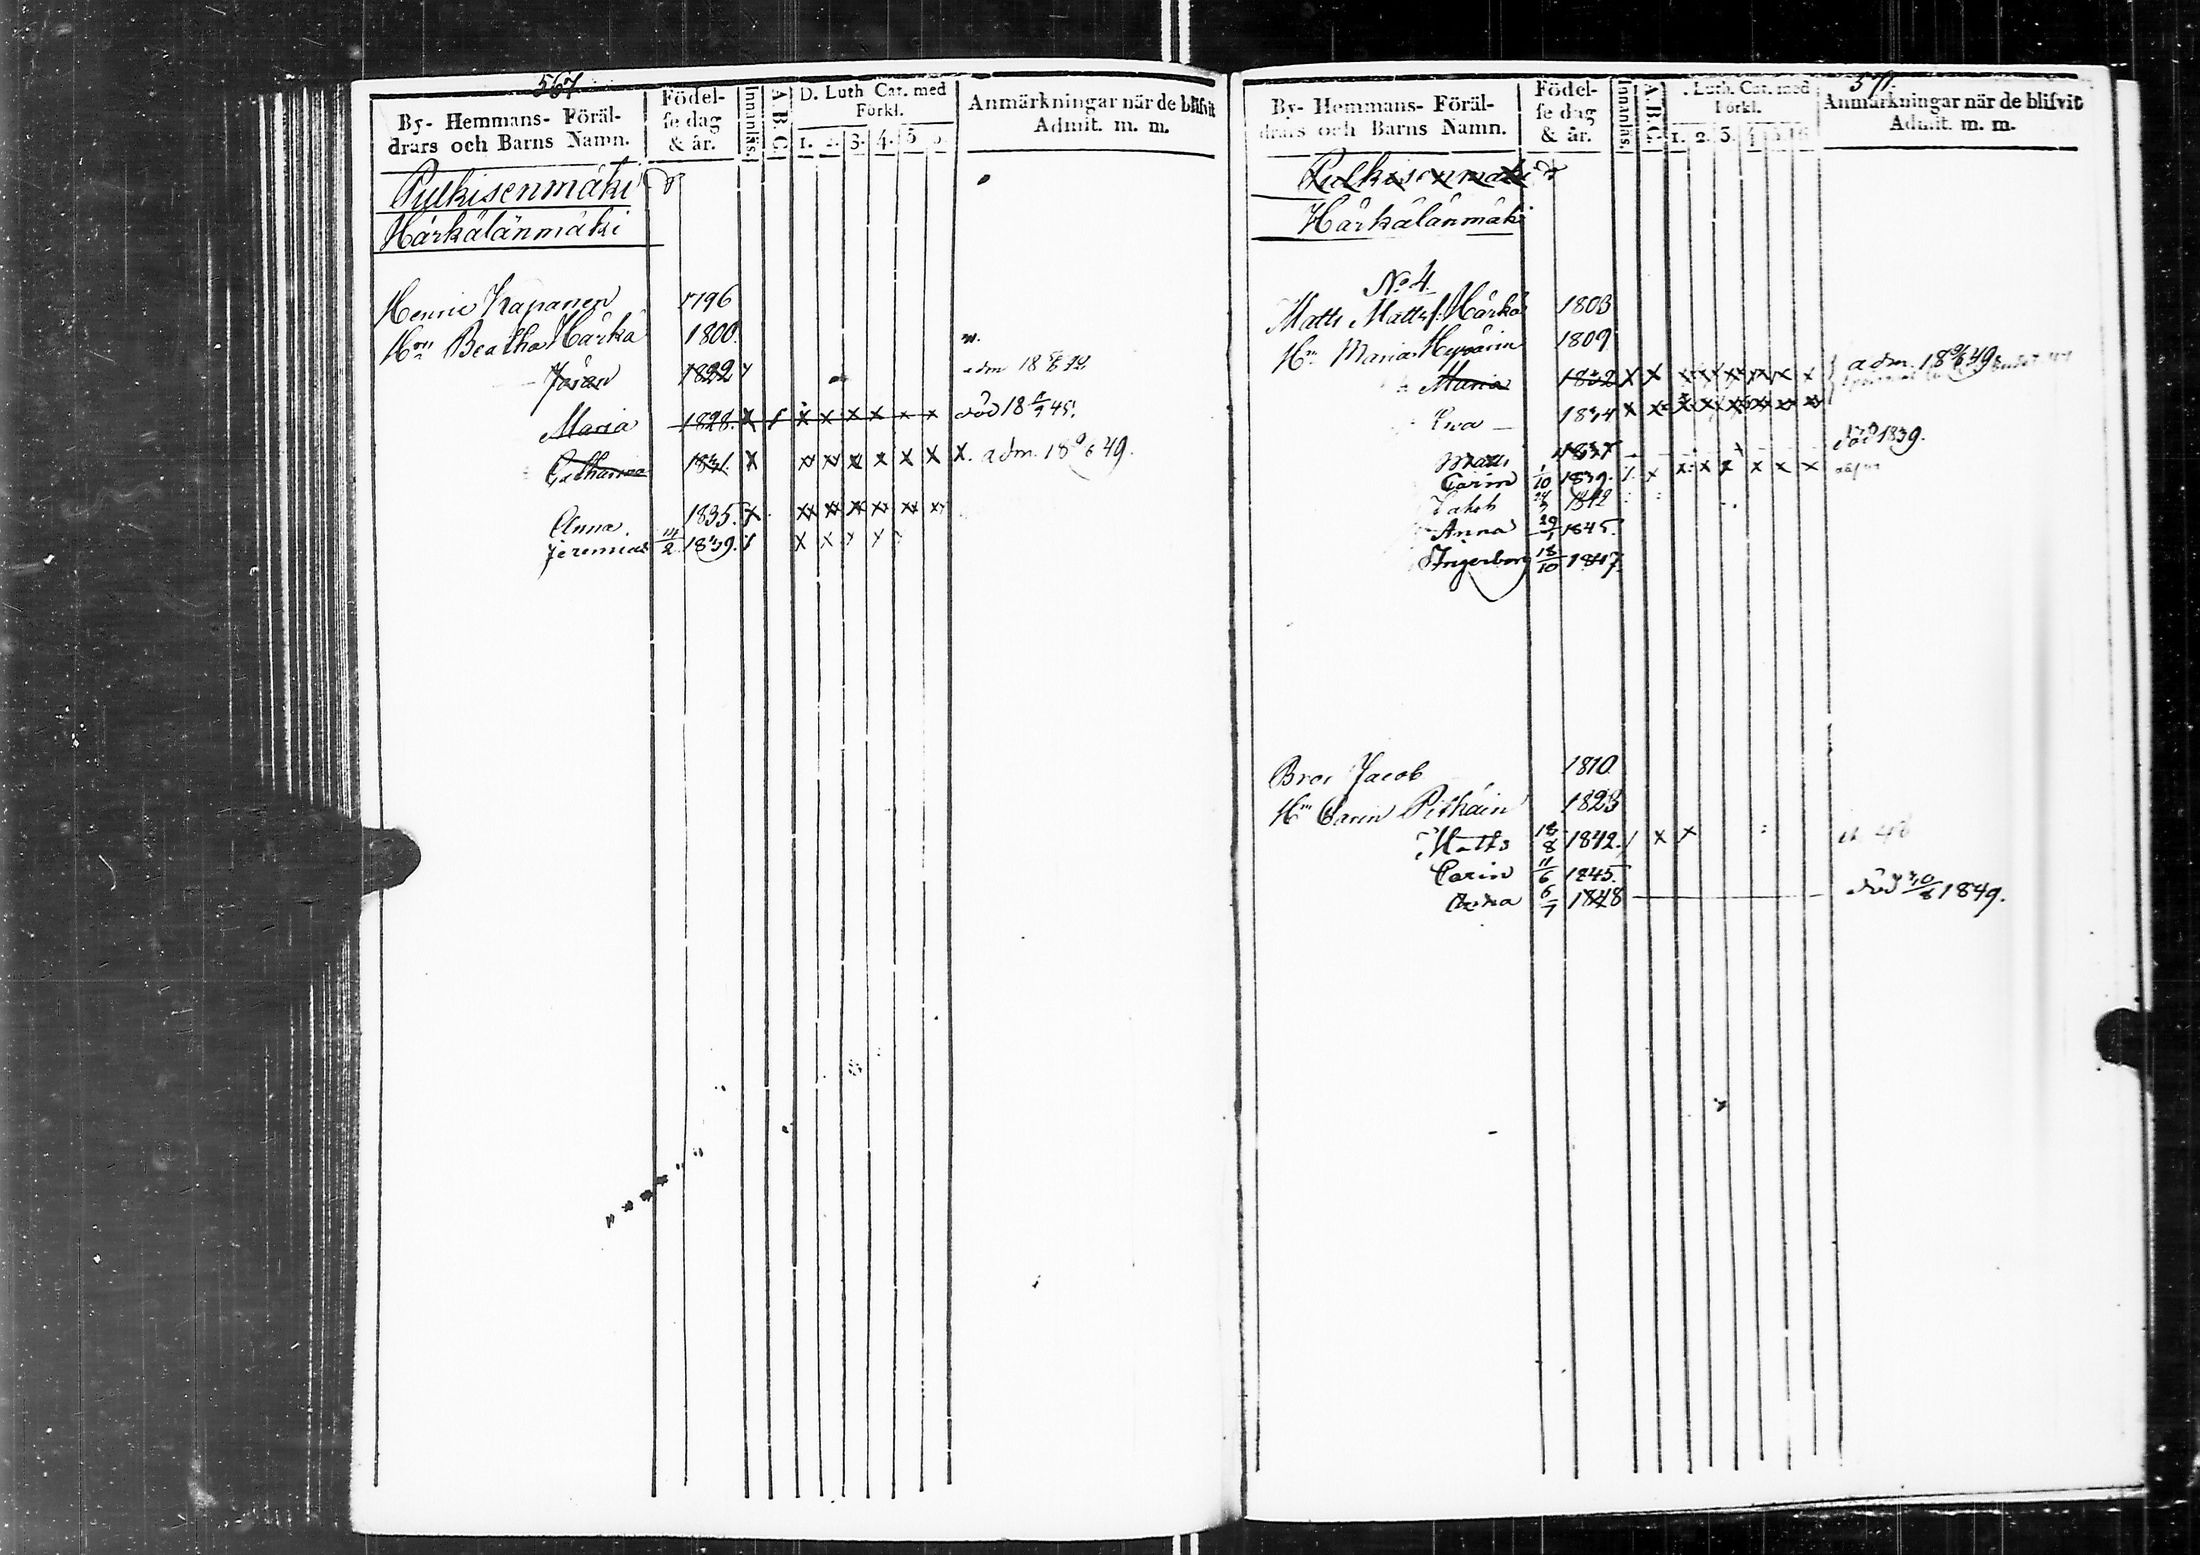 567
By- Hemmans- Föräl-
drars och Barns Namn.
Födel-
se dag
& år.
Innanläs.
A.B.C.
D. Luth Cat. med
Förkl.
1. 2. 3. 4. 5
Anmärkningar när de blifvit
Admit. m. m.
Pulkisenmäki
Härkälänmäki
Henric Kapanen 1796
Hon Beatha Härkä 1800.
Jöran 1822
Maria 1828. x x x x x x x död 18 45.
Catharina x x x x x x x x. adm. 18 49.
Anna 1835. x x x x x x x
Jeremias 1839. x x
571.
By- Hemmans- Föräl-
drars och Barns Namn.
Födel-
se dag
& år.
Innanläs.
A.B.C.
. Luth. Cat. med
Förkl.
1. 2. 3. 4
Anmärkningar när de blifvit
Admit. m. m.
Pulkisenmäki
Härkälänmäki
No 4.
Matts Mattss. Härkä 1803
Hn Maria 1809
Maria 1832 x x x x x x x x adm. 18 49
Ewa 1834 x x x x x x x x
Matts 1837 död 1839.
Carin 1/10 1839. x x x x x x x
Jakob 1842
Anna 29 1845.
Ingeborg 18/10 1847.
Bror Jacob 1810.
Hn Carin 1823
Matts 18/8 1842. x x
Carin 11/6 1845.
Anna 6/7 1848 död 1849.